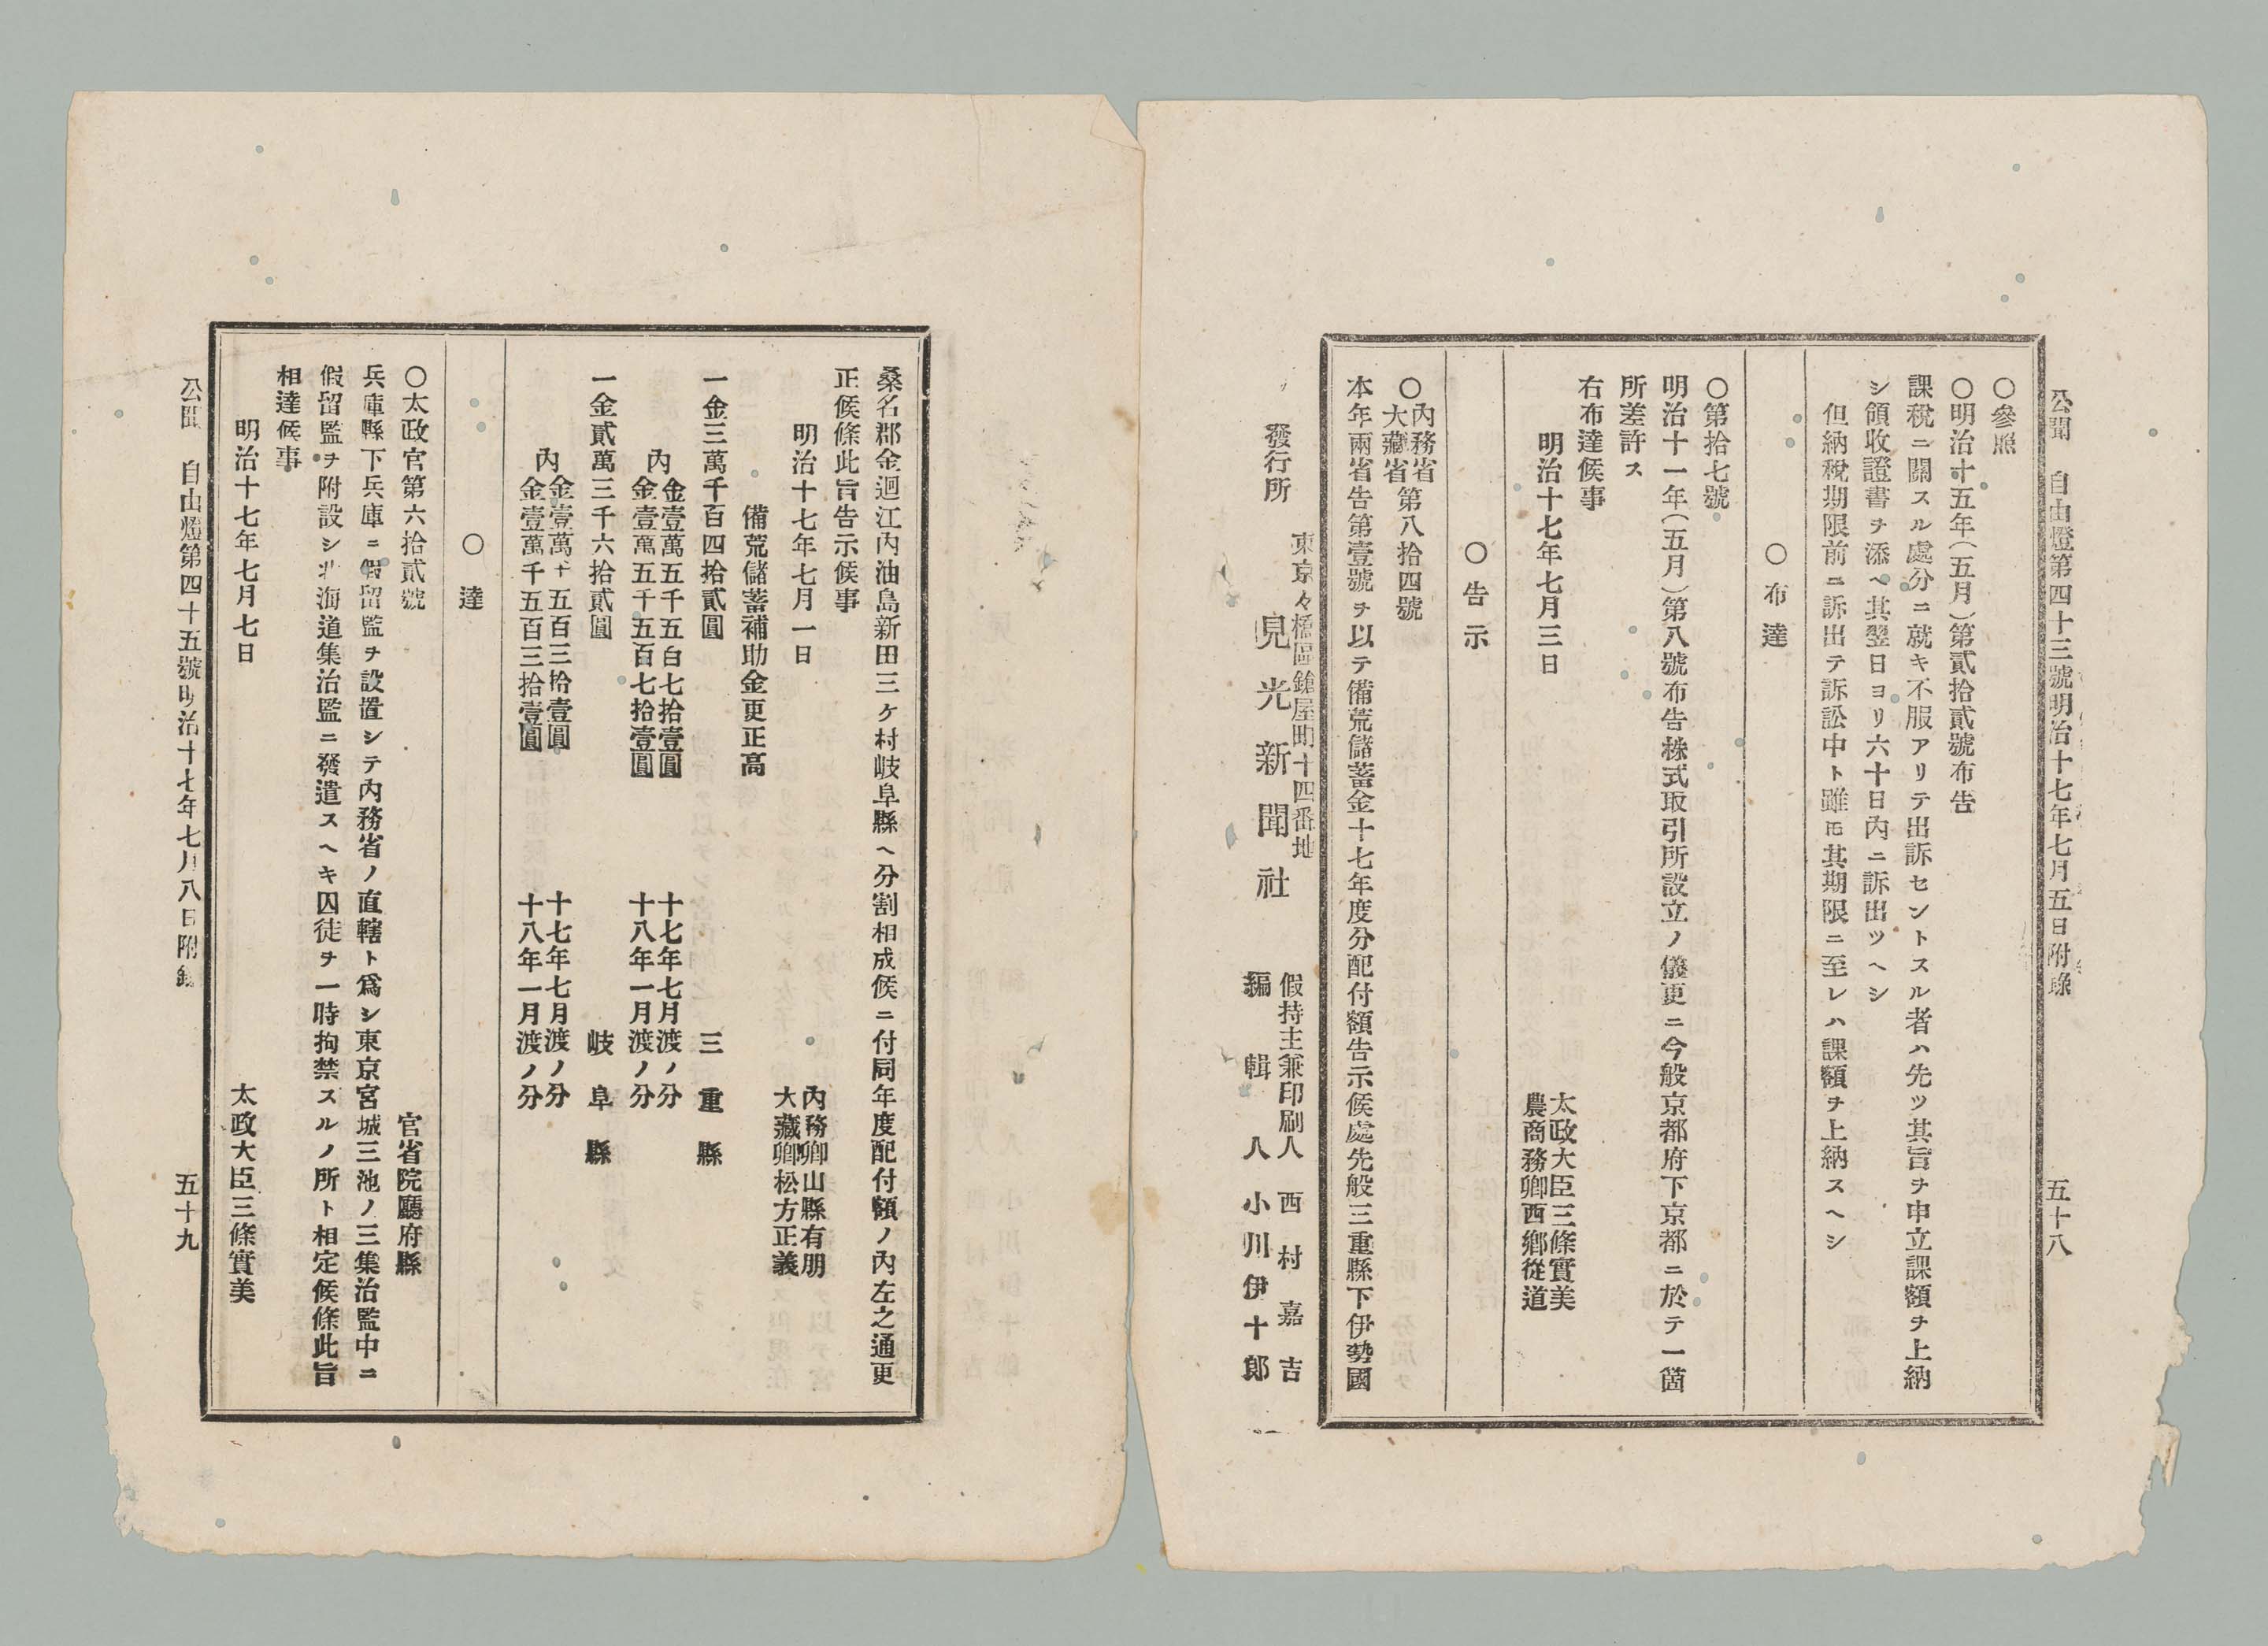 公聞 自由燈第四十三號明治十七年七月五日附錄 五十八
○參照
○明治十五年(五月)第貳拾貳號布告
課稅ニ關スル處分ニ就キ不服アリテ出訴セントスル者ハ先ツ其旨ヲ申立課額ヲ上納
シ領收證書ヲ添ヘ其翌日ヨリ六十日內ニ訴出ツヘシ
但納稅期限前ニ訴出テ訴訟中ト雖モ其期限ニ至レハ課額ヲ上納スヘシ
○布達
○第拾七號
明治十一年(五月)第八號布告株式取引所設立ノ儀更ニ今般京都府下京都ニ於テ一箇
所差許ス
右布達候事
明治十七年七月三日
太政大臣三條實美
農商務卿西鄉從道
○告示
○內務省
大藏省
第八拾四號
本年兩省告第壹號ヲ以テ備荒儲蓄金十七年度分配付額告示候處先般三重縣下伊勢國
發行所
東京々橋區鎗屋町十四番地
見光新聞社
假持主兼印刷人 西村嘉吉
編輯人 小川伊十郎
桑名郡金廻江內油島新田三ケ村岐阜縣ヘ分割相成候ニ付同年度配付額ノ內左之通更
正候條此旨告示候事
明治十七年七月一日
內務卿山縣有朋
大藏卿松方正義
備荒儲蓄補助金更正高
一金三萬千百四拾貳圓 三重縣
內
金壹萬五千五百七拾壹圓 十七年七月渡ノ分
金壹萬五千五百七拾壹圓 十八年一月渡ノ分
一金貳萬三千六拾貳圓 岐阜縣
內
金壹萬千五百三拾壹圓 十七年七月渡ノ分
金壹萬千五百三拾壹圓 十八年一月渡ノ分
○達
○太政官第六拾貳號
官省院廳府縣
兵庫縣下兵庫ニ假留監ヲ設置シテ內務省ノ直轄ト爲シ東京宮城三池ノ三集治監中ニ
假留監ヲ附設シ北海道集治監ニ發遣スヘキ囚徒ヲ一時拘禁スルノ所ト相定候條此旨
相達候事
明治十七年七月七日
太政大臣三條實美
公聞 自由燈第四十五號明治十七年七月八日附錄 五十九